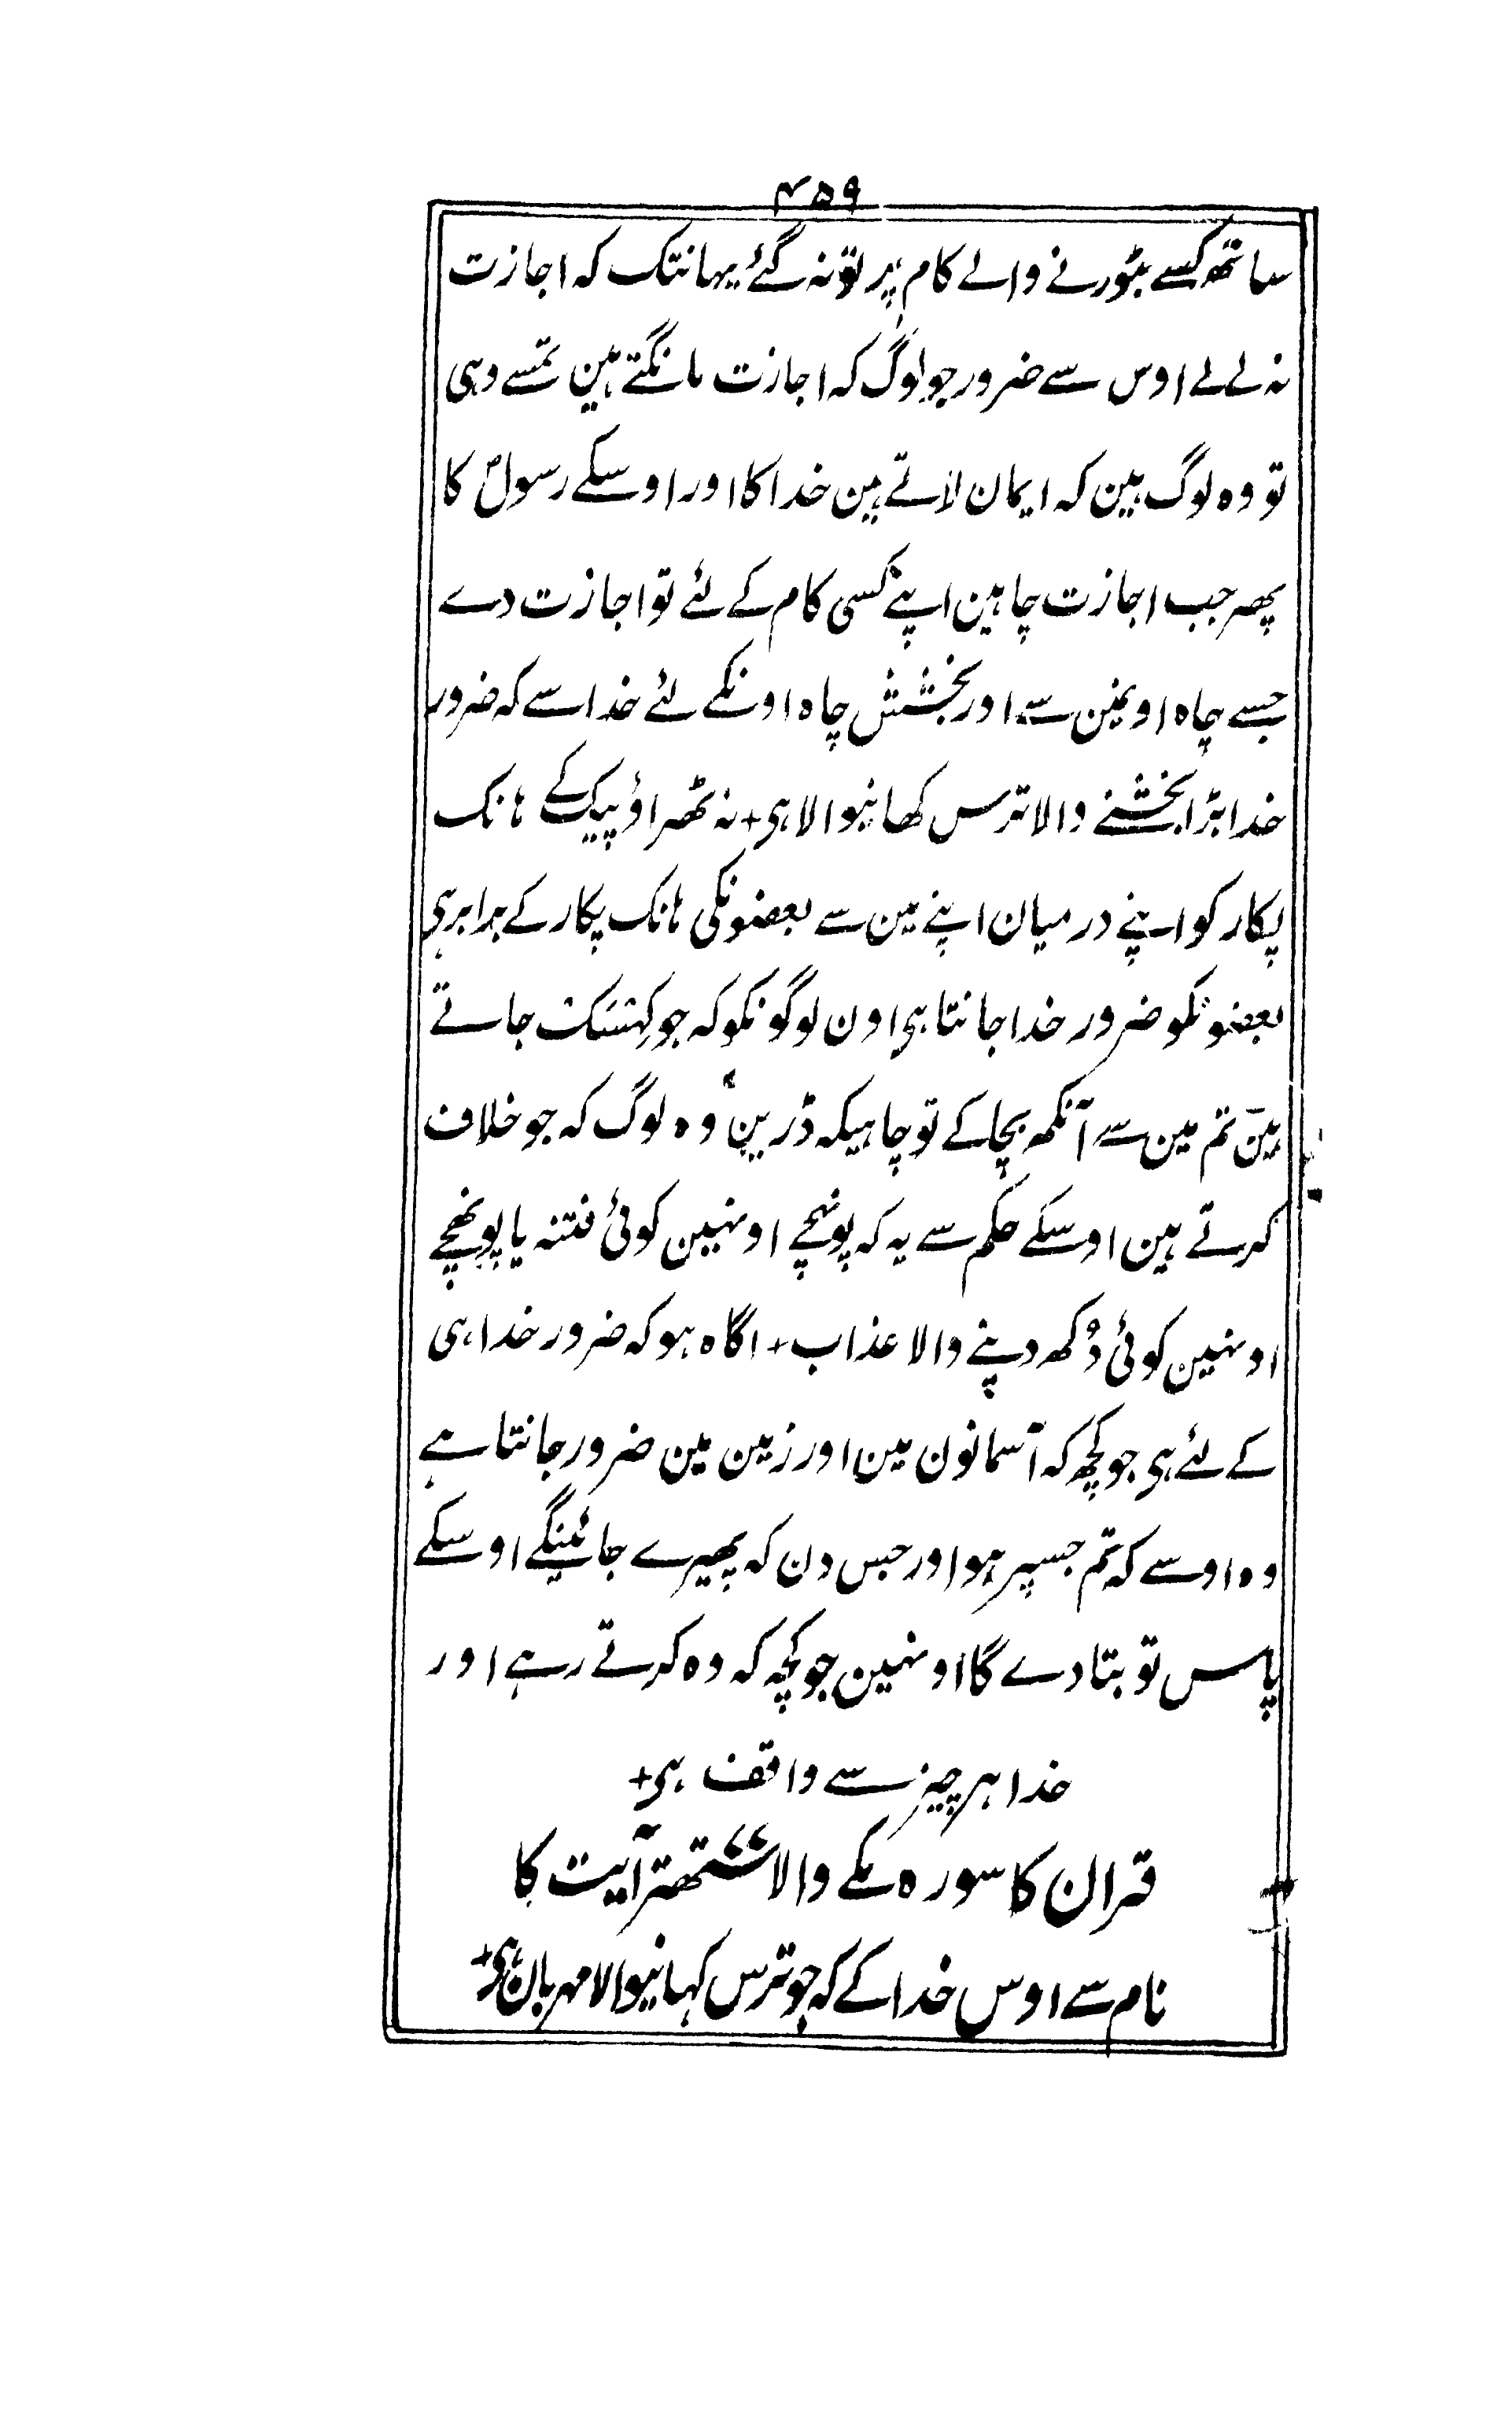 ۴۵۹
ساتھ کسے بٹورنے والے کام پر تو نہ گئے یہانتک کہ اجازت
نہ لے لے اوس سے ضرور جو لوگ کہ اجازت مانگتے ہین تمسے وہی
تو وہ لوگ ہین کہ ایمان لاتے ہین خدا کا اور اوسکے رسولؐ کا
پھر جب اجازت چاہین اپنے کسی کام کے لئے تو اجازت دے
جسے چاہ اونمین سے اور بخشش چاہ اونکے لئے خدا سے کہ ضرور
خدا بڑا بخشنے والا ترس کھانیوالا ہی + نہ ٹھراؤ پیک کے ہانک
پکار کو اپنے درمیان اپنے مین سے بعضونکی ہانک پکار کے برابر ہی
بعضونکو ضرور خدا جانتا ہی اون لوگونکو کہ جو کہسک جاتے
ہین تم مین سے آنکھ بچا کے تو چاہیکہ ڈرین وہ لوگ کہ جو خلاف
کرتے ہین اوسکے حکم سے یہ کہ پونہچے اونہین کوئی فتنہ یا پونھچے
اونہین کوئی دُکھ دینے والا عذاب + اگاہ ہو کہ ضرور خدا ہی
کے لئے ہی جو کچھ کہ آسمانون مین اور زمین مین ضرور جانتا ہے
وہ اوسے کہ تم جسپر ہو اور جس دن کہ پھیرے جائینگے اوسکے
پاس تو بتا دے گا اونہین جو کچہ کہ وہ کرتے رہے اور
خدا ہر چیز سے واقف ہی +
قران کا سورہ مکے والا ستھتر آیت کا
نام سے اوس خدا کے کہ جو ترس کہانیوالا مہربان ہی +